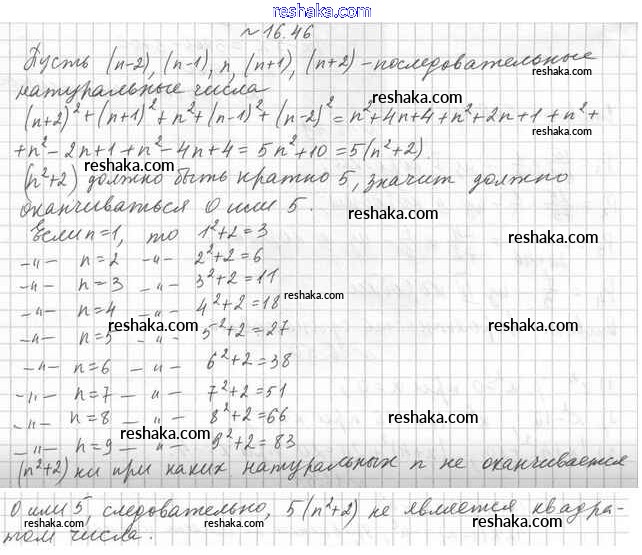 reshaka.ru
№ 16.46
Пусть (n-2), (n-1), n, (n+1), (n+2) - последовательные
натуральные числа
reshaka.ru
(n+2)² + (n+1)² + n² + (n-1)² + (n-2)² = n² + 4n + 4 + n² + 2n + 1 + n² +
+ n² - 2n + 1 + n² - 4n + 4 = 5n² + 10 = 5(n² + 2).
reshaka.ru reshaka.ru
(n²+2) должно быть кратно 5, значит должно
оканчиваться 0 или 5.
reshaka.ru
Если n=1, то 1²+2=3
reshaka.ru
-"- n=2 -"- 2²+2=6
-"- n=3 -"- 3²+2=11
-"- n=4 -"- 4²+2=18
reshaka.ru
-"- n=5 -"- 5²+2=27
reshaka.ru reshaka.ru
-"- n=6 -"- 6²+2=38
-"- n=7 -"- 7²+2=51
-"- n=8 -"- 8²+2=66
reshaka.ru
-"- n=9 -"- 9²+2=83
reshaka.ru
(n²+2) ни при каких натуральных n не оканчивается
0 или 5, следовательно, 5(n²+2) не является квадра-
reshaka.ru reshaka.ru reshaka.ru
том числа.